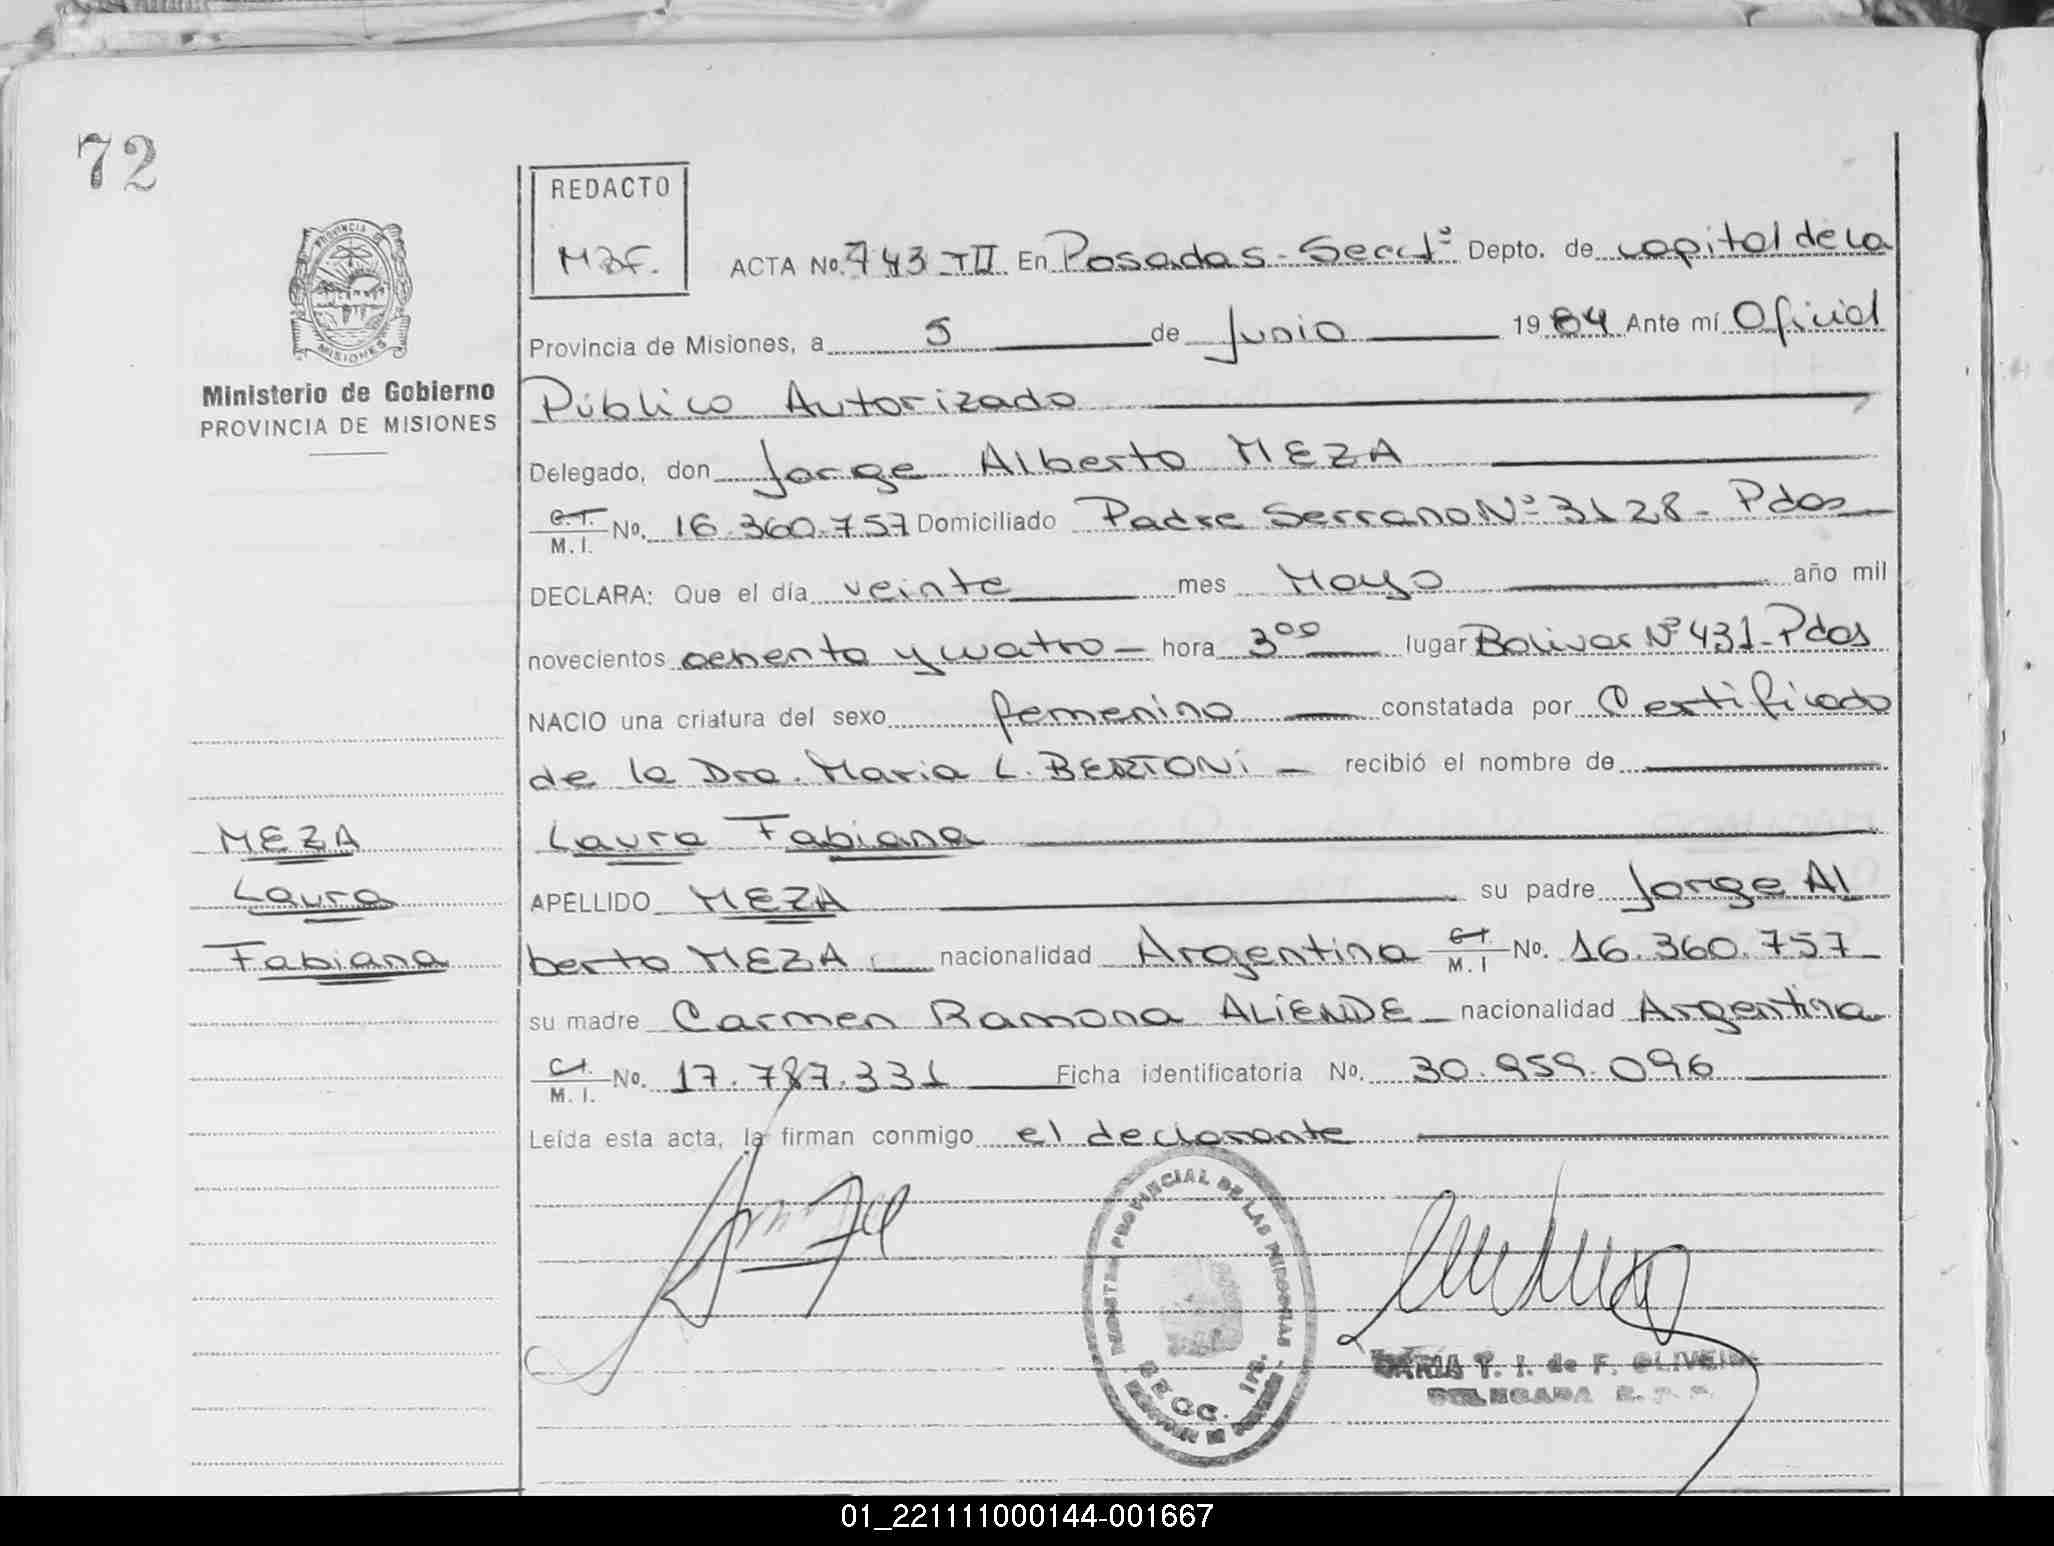 72
REDACTO
MBF.
PROVINCIA DE
MISIONES
Ministerio de Gobierno
PROVINCIA DE MISIONES
ACTA No. 743 TII En Posadas - Secc 1ª Depto. de capital de la
Provincia de Misiones, a 5 de Junio 1984 Ante mí Oficial
Público Autorizado
Delegado, don Jorge Alberto MEZA
C.I. M. I. No. 16.360.757 Domiciliado Padre Serrano Nº 3128 - Pdas
DECLARA: Que el día veinte mes Mayo año mil
novecientos ochenta y cuatro - hora 3⁰⁰ lugar Bolivar Nº 431 - Pdas
NACIO una criatura del sexo femenino constatada por Certificado
de la Dra. Maria L. BERTONI - recibió el nombre de
MEZA
Laura Fabiana
Laura
APELLIDO MEZA su padre Jorge Al
Fabiana
berto MEZA nacionalidad Argentina C.I. M. I No. 16.360.757
su madre Carmen Ramona ALIENDE - nacionalidad Argentina
C.I. M. I. No. 17.787.331 Ficha identificatoria No. 30.959.096
Leída esta acta, la firman conmigo el declarante
REGISTRO PROVINCIAL DE LAS PERSONAS
SECC. 1ra.
MARIA T. I. de F. OLIVEIRA
DELEGADA R. P. P.
01_221111000144-001667